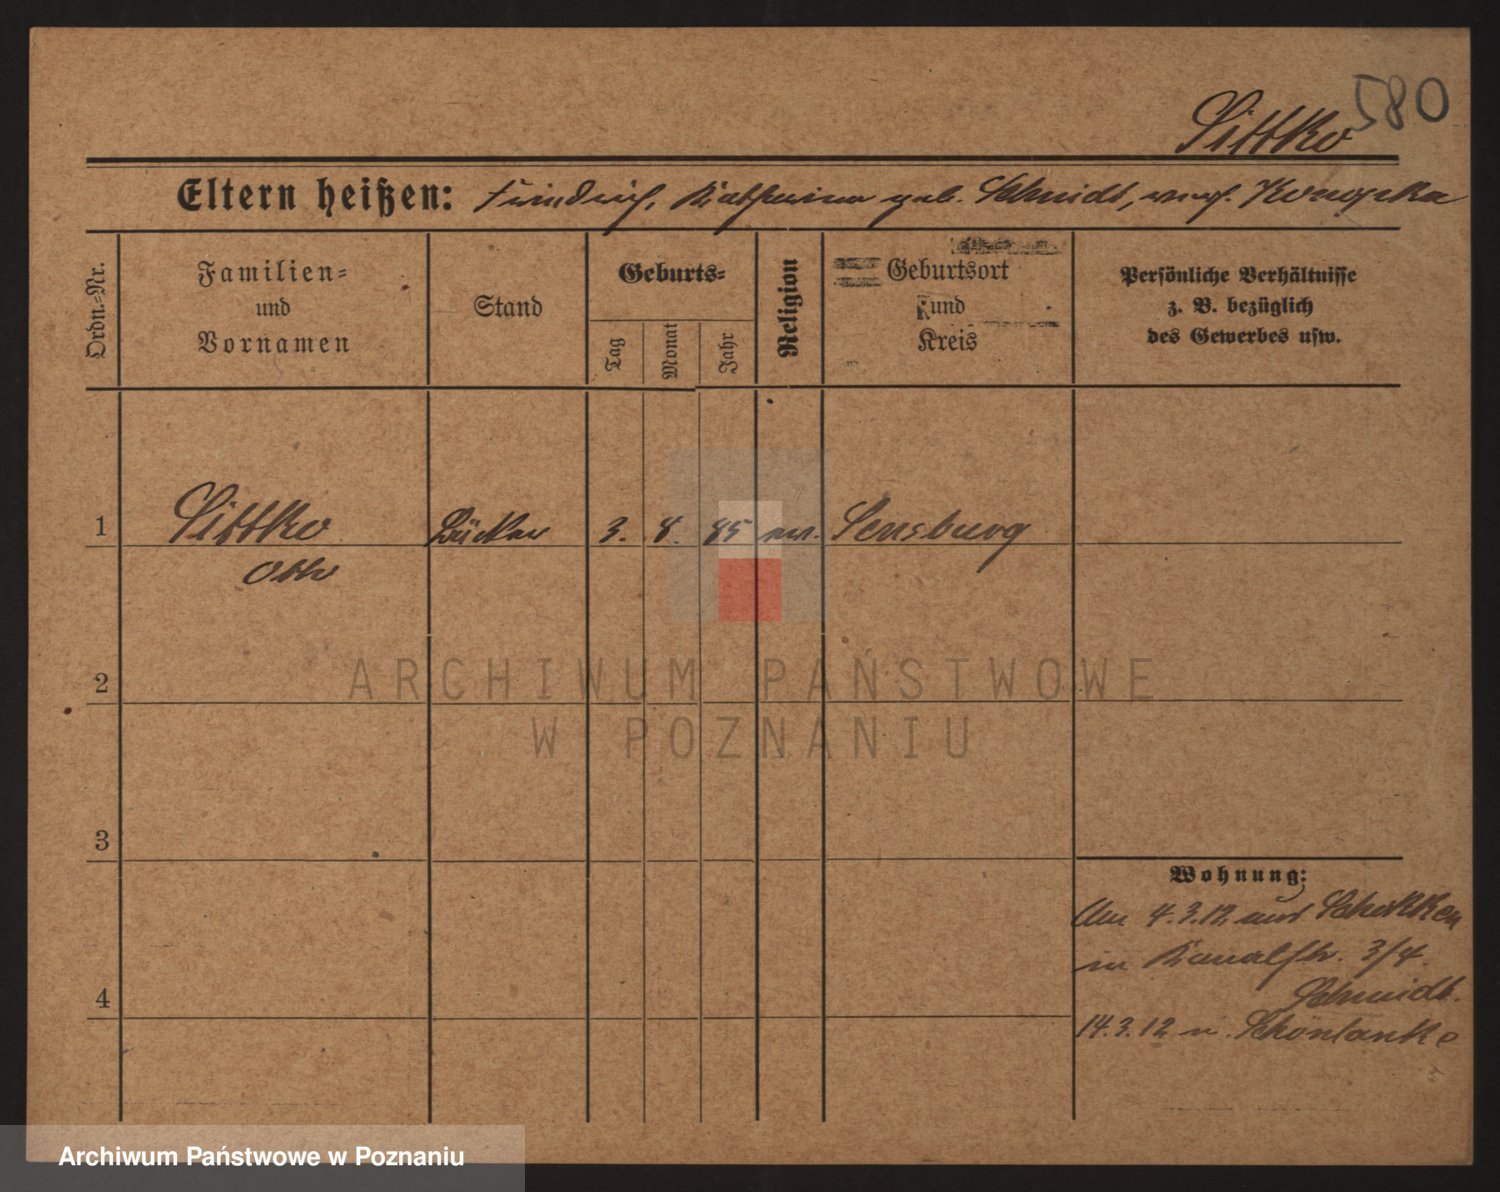 580
Sittko
Eltern heißen: Friedrich, Katharina geb. Schmidt,
Ordn.-Nr.
Familien-
und
Vornamen
Stand
Geburts-
Tag
Monat
Jahr
Religion
Geburtsort
und
Kreis
Persönliche Verhältnisse
z. B. bezüglich
des Gewerbes usw.
1 Sittko Bäcker 3. 8. 85 ev. Sensburg
Otto
2
3
4
Wohnung:
Am 4.3.12 aus Schokken
in Kanalstr. 3/4.
Schmidt.
14.3.12 n. Schönlanke
ARCHIWUM PAŃSTWOWE
W POZNANIU
Archiwum Państwowe w Poznaniu